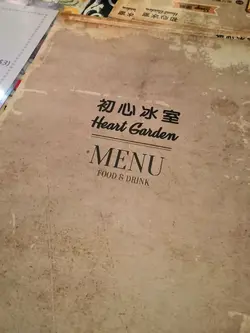 初心冰室
Heart Garden
MENU
FOOD & DRINK